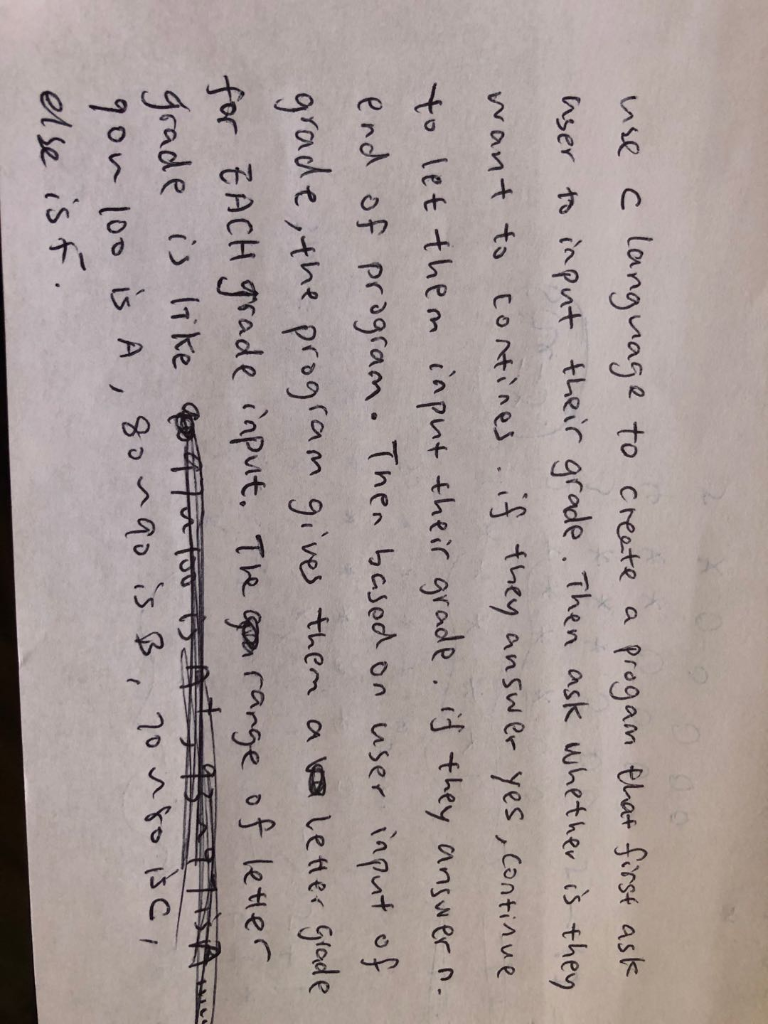 use c language to create a progam that first ask
user to input their grade. Then ask whether is they
want to contines. if they answer yes, continue
to let them input their grade. if they answer n.
end of program. Then based on user input of
grade, the program gives them a letter grade
for EACH grade input. The range of letter
grade is like
90~100 is A, 80~90 is B, 70~80 is C,
else is F.